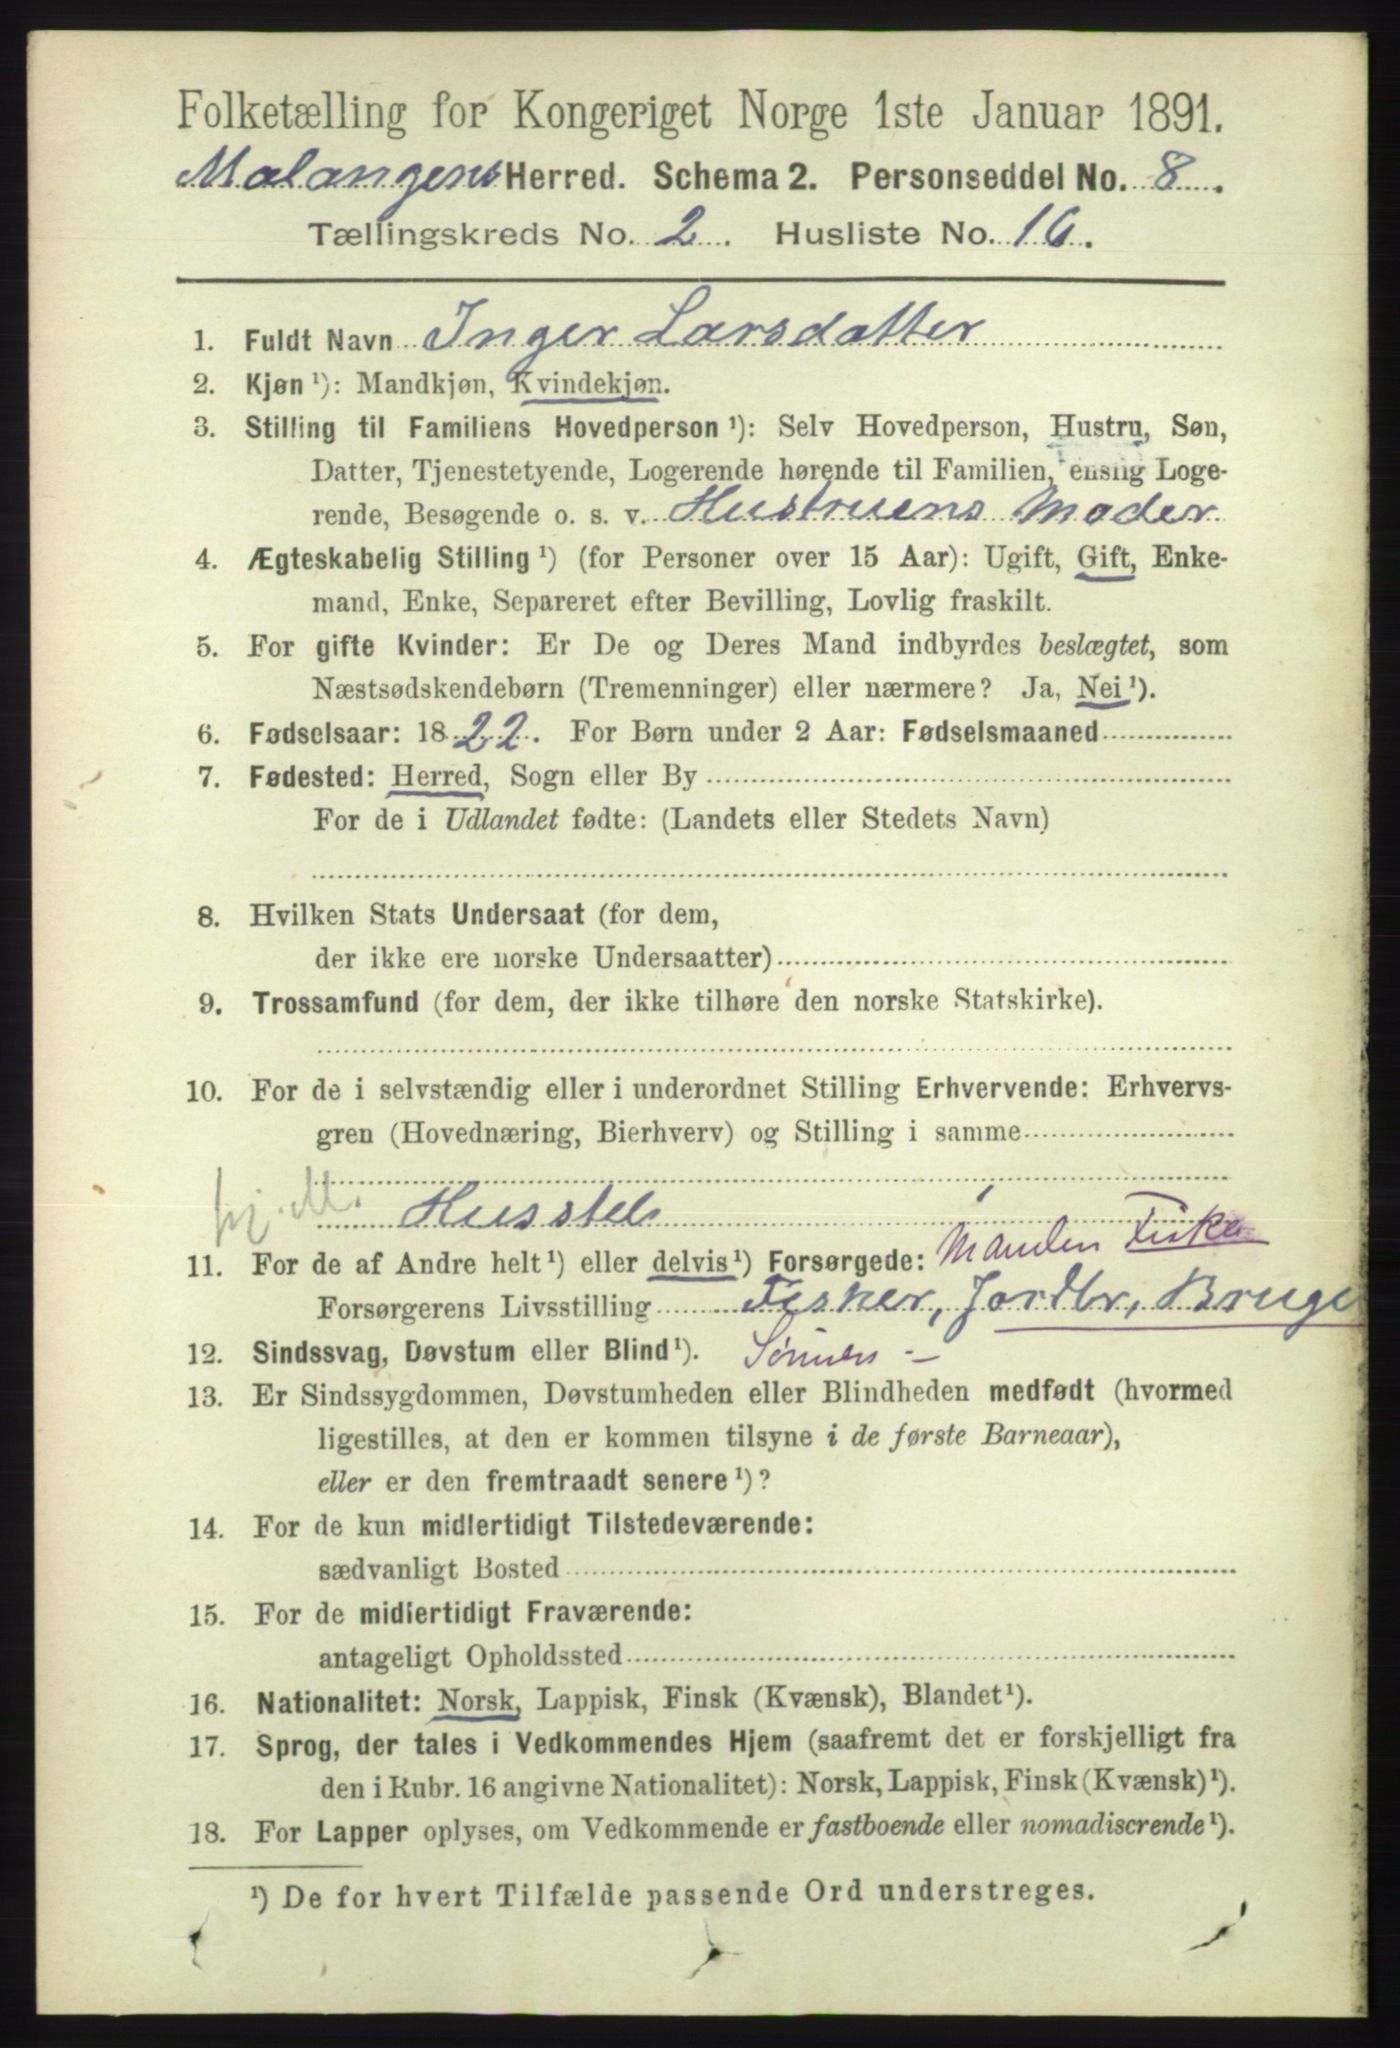 Folketælling for Kongeriget Norge 1ste Januar 1891.
Malangens Herred. Schema 2. Personseddel No. 8.
Tællingskreds No. 2. Husliste No. 16.
1. Fuldt Navn Inger Larsdatter
2. Kjøn ¹): Mandkjøn, Kvindekjøn.
3. Stilling til Familiens Hovedperson ¹): Selv Hovedperson, Hustru, Søn,
Datter, Tjenestetyende, Logerende hørende til Familien, enslig Loge-
rende, Besøgende o. s. v. Hustruens Moder
4. Ægteskabelig Stilling ¹) (for Personer over 15 Aar): Ugift, Gift, Enke-
mand, Enke, Separeret efter Bevilling, Lovlig fraskilt.
5. For gifte Kvinder: Er De og Deres Mand indbyrdes beslægtet, som
Næstsødskendebørn (Tremenninger) eller nærmere? Ja, Nei ¹).
6. Fødselsaar: 1822. For Børn under 2 Aar: Fødselsmaaned
7. Fødested: Herred, Sogn eller By
For de i Udlandet fødte: (Landets eller Stedets Navn)
8. Hvilken Stats Undersaat (for dem,
der ikke ere norske Undersaatter)
9. Trossamfund (for dem, der ikke tilhøre den norske Statskirke).
10. For de i selvstændig eller i underordnet Stilling Erhvervende: Erhvervs-
gren (Hovednæring, Bierhverv) og Stilling i samme
Husstel
11. For de af Andre helt ¹) eller delvis ¹) Forsørgede: Manden Fisker
Forsørgerens Livsstilling Fisker, Jordbr, Bruge
12. Sindssvag, Døvstum eller Blind ¹).
13. Er Sindssygdommen, Døvstumheden eller Blindheden medfødt (hvormed
ligestilles, at den er kommen tilsyne i de første Barneaar),
eller er den fremtraadt senere ¹)?
14. For de kun midlertidigt Tilstedeværende:
sædvanligt Bosted
15. For de midlertidigt Fraværende:
antageligt Opholdssted
16. Nationalitet: Norsk, Lappisk, Finsk (Kvænsk), Blandet ¹).
17. Sprog, der tales i Vedkommendes Hjem (saafremt det er forskjelligt fra
den i Rubr. 16 angivne Nationalitet): Norsk, Lappisk, Finsk (Kvænsk) ¹).
18. For Lapper oplyses, om Vedkommende er fastboende eller nomadiserende ¹).
¹) De for hvert Tilfælde passende Ord understreges.